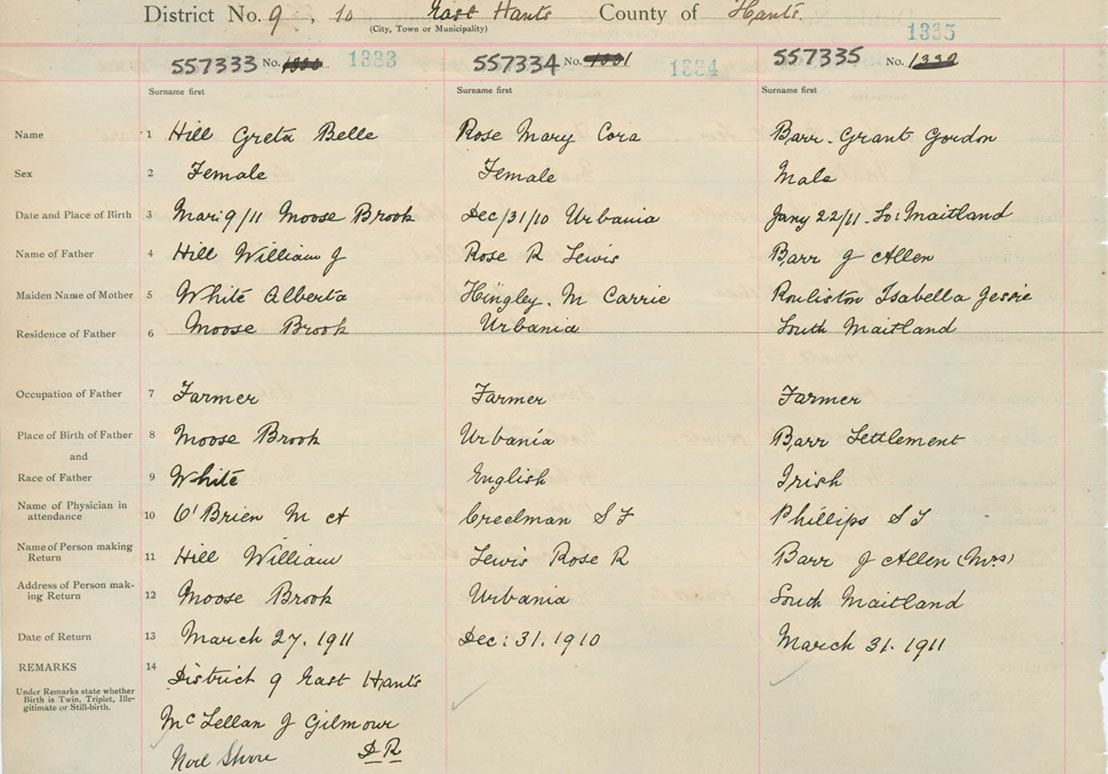 District No. 9, 10 East Hants County of Hants.
(City, Town or Municipality)
557333 No. 1333 557334 No. 1334 557335 No. 1335
Surname first Surname first Surname first
Name 1 Hill Greta Belle Rose Mary Cora Barr. Grant Gordon
Sex 2 Female Female Male
Date and Place of Birth 3 Mar 9/11 Moose Brook Dec/31/10 Urbania Jany 22/11. So: Maitland
Name of Father 4 Hill William J Rose R Lewis Barr J Allen
Maiden Name of Mother 5 White Alberta Hingley. M Carrie Rouliston Isabella Jessie
Residence of Father 6 Moose Brook Urbania South Maitland
Occupation of Father 7 Farmer Farmer Farmer
Place of Birth of Father 8 Moose Brook Urbania Barr Settlement
and
Race of Father 9 White English Irish
Name of Physician in attendance 10 O'Brien M A Creelman S F Phillips S J
Name of Person making Return 11 Hill William Lewis Rose R Barr J Allen (Mrs)
Address of Person making Return 12 Moose Brook Urbania South Maitland
Date of Return 13 March 27. 1911 Dec: 31. 1910 March 31. 1911
REMARKS 14 District 9 East Hants
Under Remarks state whether
Birth is Twin, Triplet, Ille-
gitimate or Still-birth.
McLellan J Gilmour
Noel Shore D R